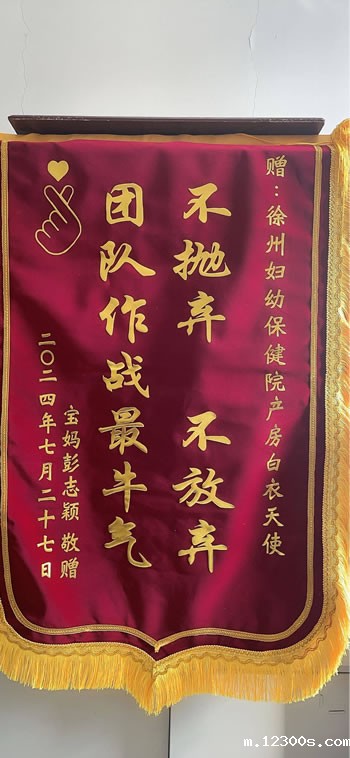 赠：徐州妇幼保健院产房白衣天使
不抛弃 不放弃
团队作战最牛气
宝妈彭志颖 敬赠
二〇二四年七月二十七日
m.12300s.com